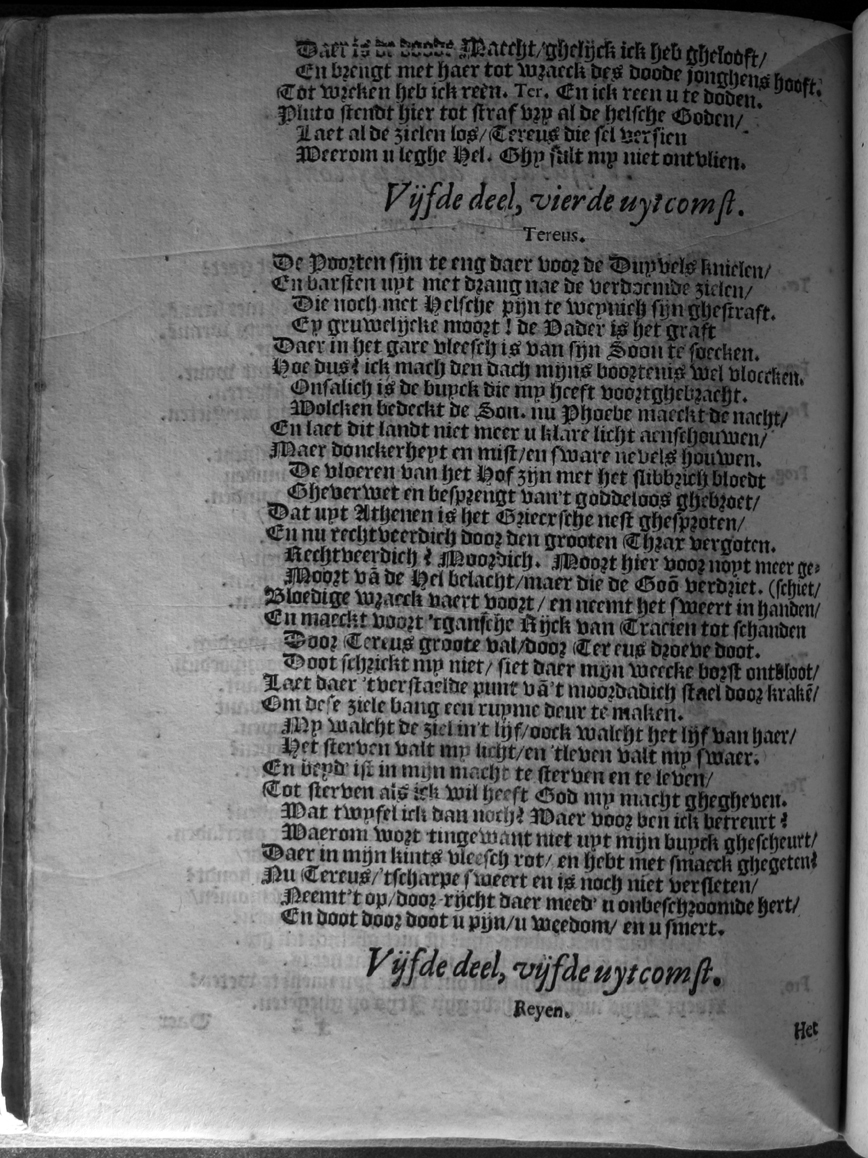 Daer is de doode Matcht/ghelijck ick heb ghelooft/
En brengt met haer tot wraeck des doode jonghens hooft.
Tot wreken heb ick reen. Ter. En ick reen u te doden.
Pluto stendt hier tot straf vry al de helsche Goden/
Laet al de zielen los/Tereus die sel versien
Weerom u leghe Hel. Ghy sult my niet ontvlien.
Vijfde deel, vierde uytcomst.
Tereus.
De Poorten sijn te eng daer voor de Duyvels knielen/
En barsten uyt met drang nae de verdoemde zielen/
Die noch met Helsche pijn te weynich sijn ghestraft.
Ey gruwelijcke moort! de Vader is het graft
Daer in het gare vleesch is van sijn Soon te soecken.
Hoe dus? ick mach den dach mijns boortenis wel vloecken.
Onsalich is de buyck die my heeft voortghebracht.
Wolcken bedeckt de Son. nu Phoebe maeckt de nacht/
En laet dit landt niet meer u klare licht aenschouwen/
Maer donckerheyt en mist/en sware nevels houwen.
De vloeren van het Hof zijn met het slibbrich bloedt
Gheverwet en besprengt van't goddeloos ghebroet/
Dat uyt Athenen is het Griecksche nest ghesproten/
En nu rechtveerdich door den grooten Thrax vergoten.
Rechtveerdich? Moordich. Moort hier voor noyt meer ge-
Moort vā de Hel belacht/maer die de Goō verdriet. (schiet/
Bloedige wraeck vaert voort/ en neemt het sweert in handen/
En maeckt voort 'tgansche Rijck van Tracien tot schanden
Door Tereus groote val/door Tereus droeve doot.
Doot schrickt my niet/ siet daer mijn weecke borst ontbloot/
Laet daer 'tverstaelde punt vā't moordadich stael door krakē/
Om dese ziele bang een ruyme deur te maken.
My walcht de ziel in't lijf/oock walcht het lijf van haer/
Het sterven valt my licht/en 'tleven valt my swaer.
En beyd' ist in mijn macht te sterven en te leven/
Tot sterven als ick wil heeft God my macht ghegheven.
Wat twyfel ick dan noch? Waer voor ben ick betreurt?
Waerom wort tingewant niet uyt mijn buyck ghescheurt/
Daer in mijn kints vleesch rot/ en hebt met smaeck ghegeten?
Nu Tereus/'tscharpe sweert en is noch niet versleten/
Neemt't op/door-rijcht daer meed' u onbeschroomde hert/
En doot door doot u pijn/u weedom/ en u smert.
Vijfde deel, vijfde uytcomst.
Reyen.
Het